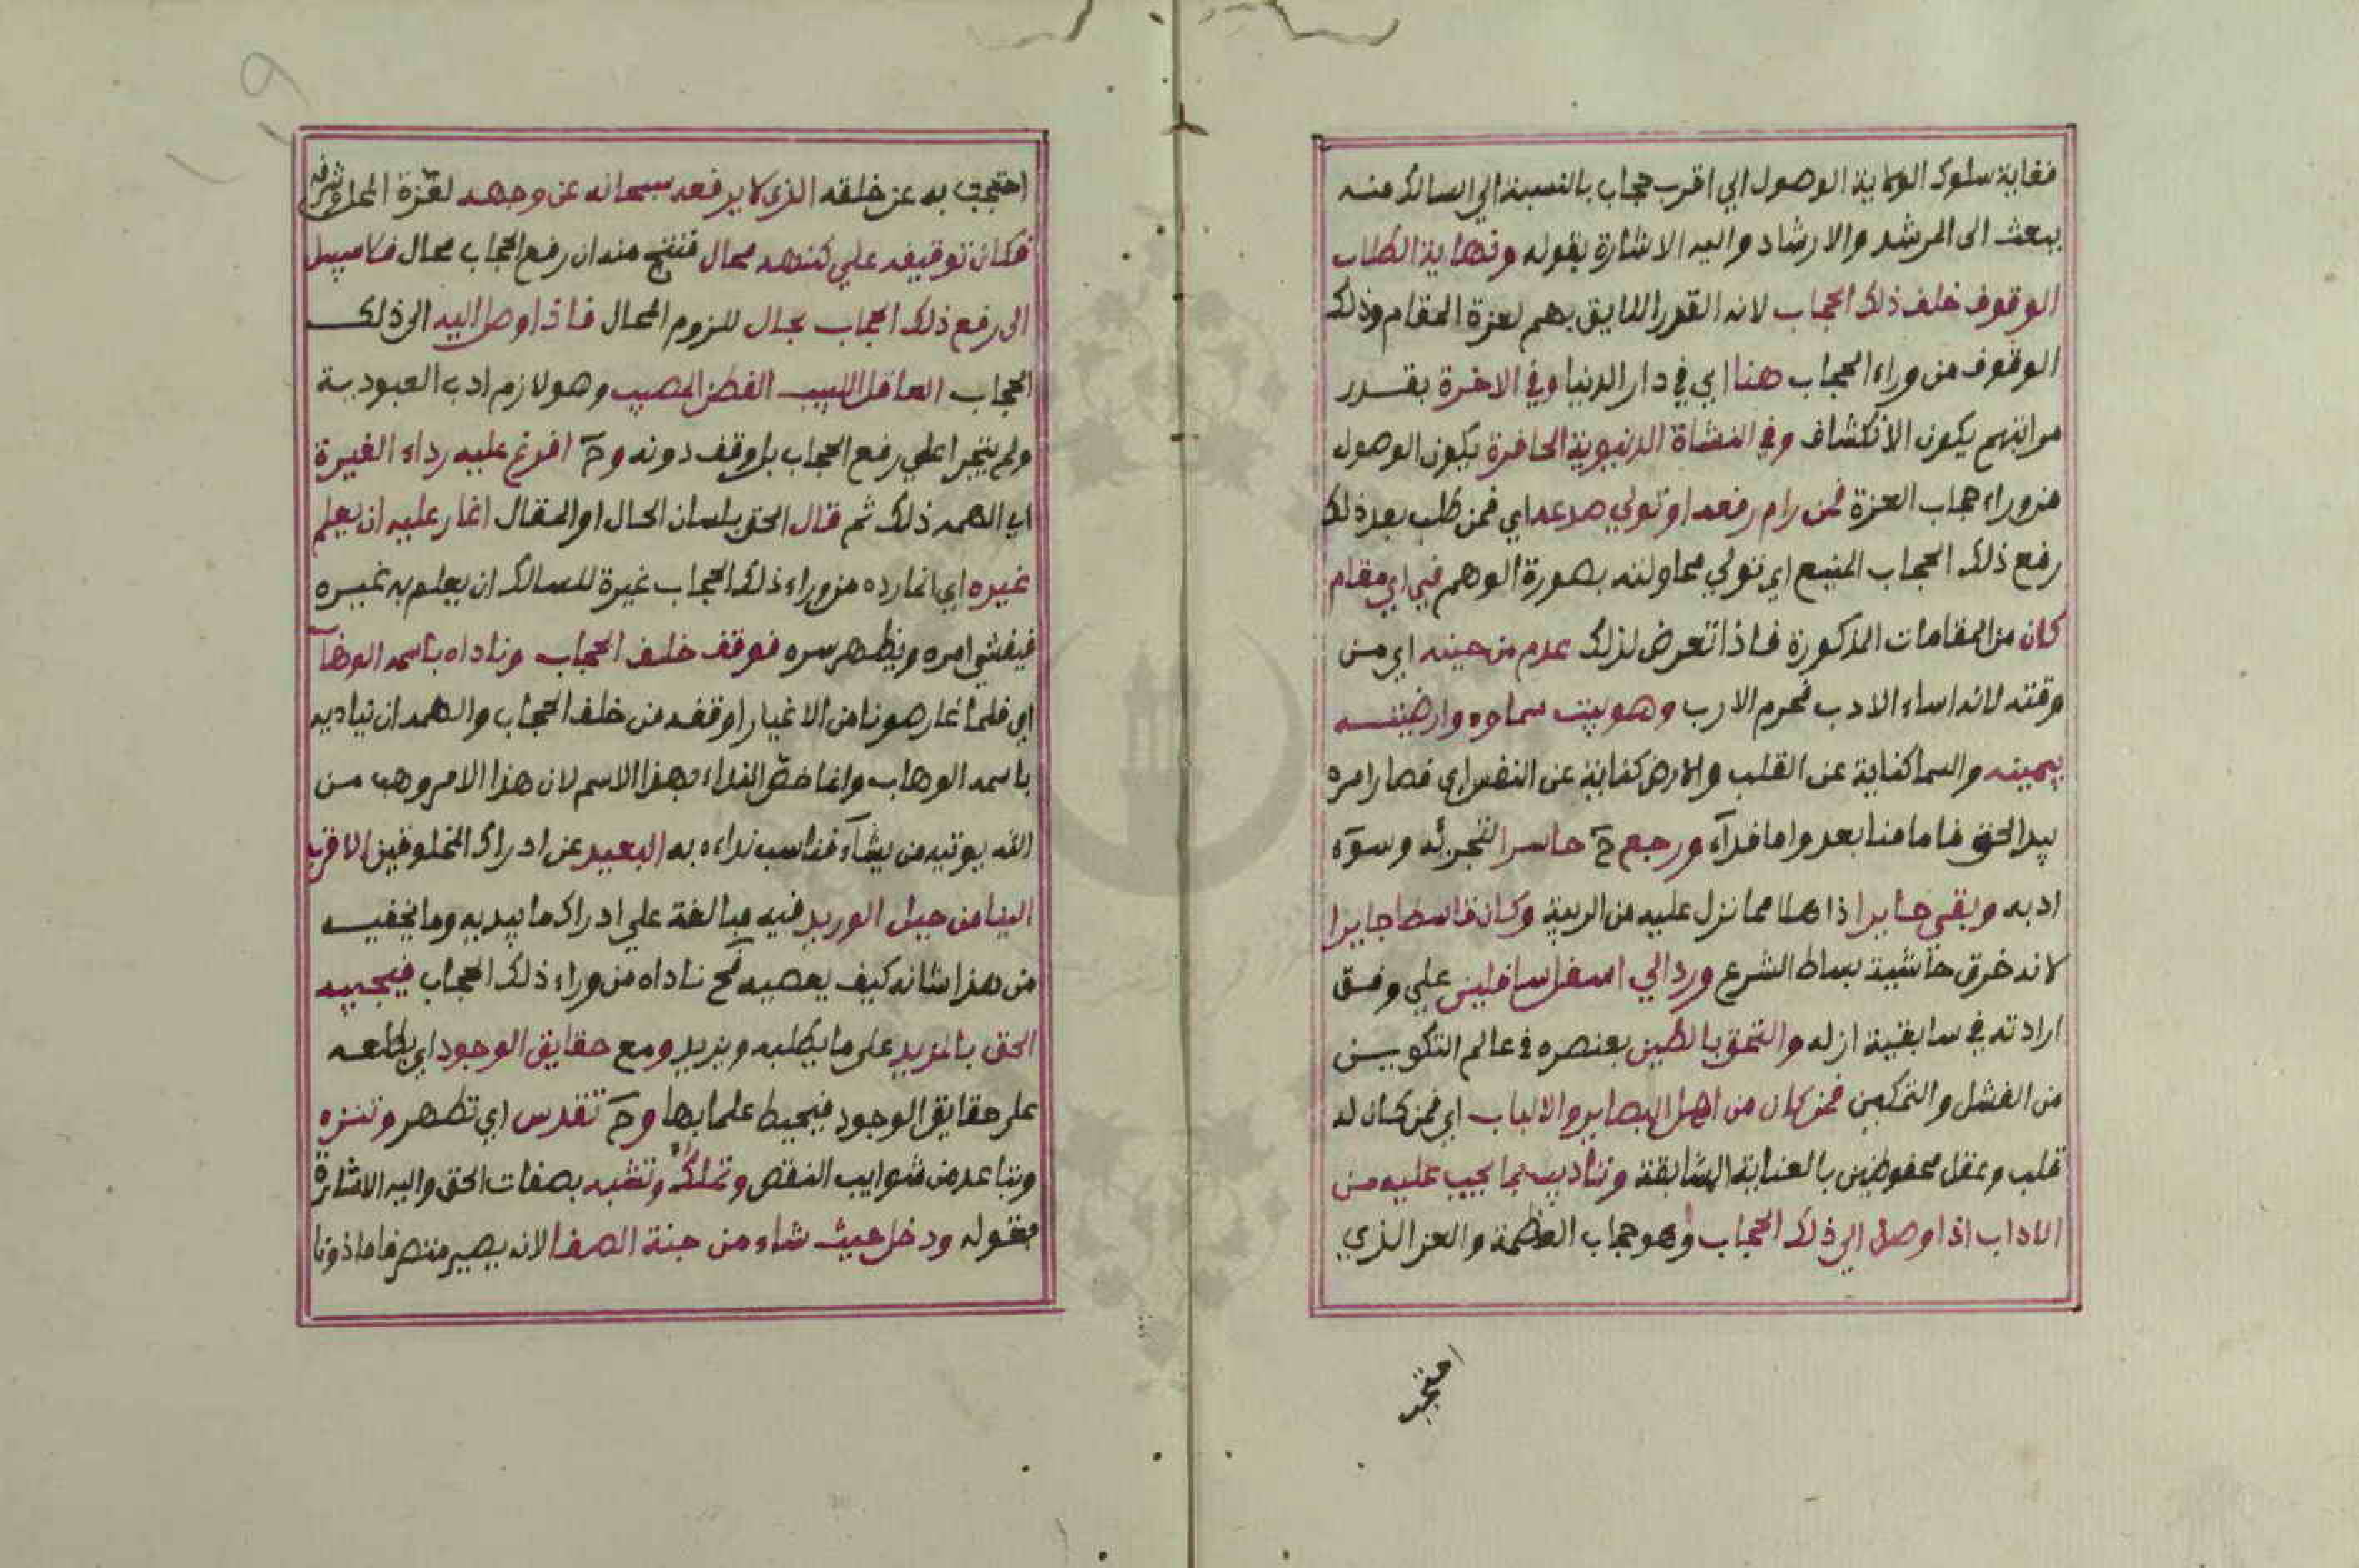 فغاية سلوك الولاية الوصول الي اقرب حجاب بالنسبة الي السالك منه
يبعث الى المرشد والارشاد واليه الاشارة بقوله ونهاية الطلاب
الوقوف خلف ذلك الحجاب لانه القدر اللايق بهم لعزة المقام وذلك
الوقوف من وراء الحجاب هنا اي في دار الدنيا وفي الاخرة بقدر
مراتبهم يكون الانكشاف وفي النشاة الدنيوية الحاضرة يكون الوصول
من وراء حجاب العزة فمن رام رفعه او تولي صدعه اي فمن طلب بعد ذلك
رفع ذلك الحجاب المنيع اي تولي محاولته بصورة الوهم في اي مقام
كان من المقامات المذكورة فاذا تعرض لذلك عدم من حينه اي من
وقته لانه اساء الادب فحرم الارب وهويت سماوه وارضيته
بيمينه والسما كناية عن القلب والارض كناية عن النفس اي فصار امره
بيد الحق فاما منا بعد واما فدآء ورجع حٓ خاسرا لتجرئه وسوٓء
ادبه وبقي حايرا ذاهلا مما نزل عليه من الريبة وكان قاسطا جايرا
لانه خرق حاشية بساط الشرع ورد الي اسفل سافلين علي وفق
ارادته في سابقية ازله والتحق بالطين بعنصره في عالم التكوين
من الفشل والتمكين فمن كان من اهل البصاير والالباب اي فمن كان له
قلب وعقل محفوظين بالعناية السابقة وتادب بما يجب عليه من
الاداب اذا وصل الي ذلك الحجاب وهو حجاب العظمة والعز الذي
احتجب
احتجب به عن خلقه الذي لا يرفعه سبحانه عن وجهه لعزة المحل وشرفه
فكان توقيفه علي كنهه محال فنتج منه ان رفع الحجاب محال فلا سبيل
الى رفع ذلك الحجاب بحال للزوم المحال فاذا وصل اليه الى ذلك
الحجاب العاقل اللبيب الفطن المصيب وهو لازم ادب العبودية
ولم يتجرا علي رفع الحجاب بل وقف دونه وحٓ افرغ عليه رداء الغيرة
اي الهمه ذلك ثم قال الحق بلسان الحال او المقال اغار عليه ان يعلم
غيره اي انما رده من وراء ذلك الحجاب غيرة للسالك ان يعلم به غيره
فيفشي امره ويظهر سره فوقف خلف الحجاب وناداه باسمه الوهاب
اي فلما غار صونا من الاغيار اوقفه من خلف الحجاب والهمه ان يناديه
باسمه الوهاب وانما خصّ النداء بهذا الاسم لان هذا الامر وهب من
الله يوتيه من يشآء فناسب نداءه به البعيد عن ادراك المخلوقين الاقرب
الينا من حبل الوريد فيه مبالغة علي ادراك ما يبديه وما يخفيه
من هذا شانه كيف يعصيه فحٓ ناداه من وراء ذلك الحجاب فيجيبه
الحق بالمزيد على ما يطلبه ويزيد ومع حقايق الوجود اي يطلعه
على حقايق الوجود فيحيط علما بها وحٓ تقدس اي تطهر وتنزه
وتباعد من شوايب النقص وتملك وتشبه بصفات الحق واليه الاشارة
بقوله ودخل حيث شاء من جنة الصفا لانه يصير متصرفا ماذونا